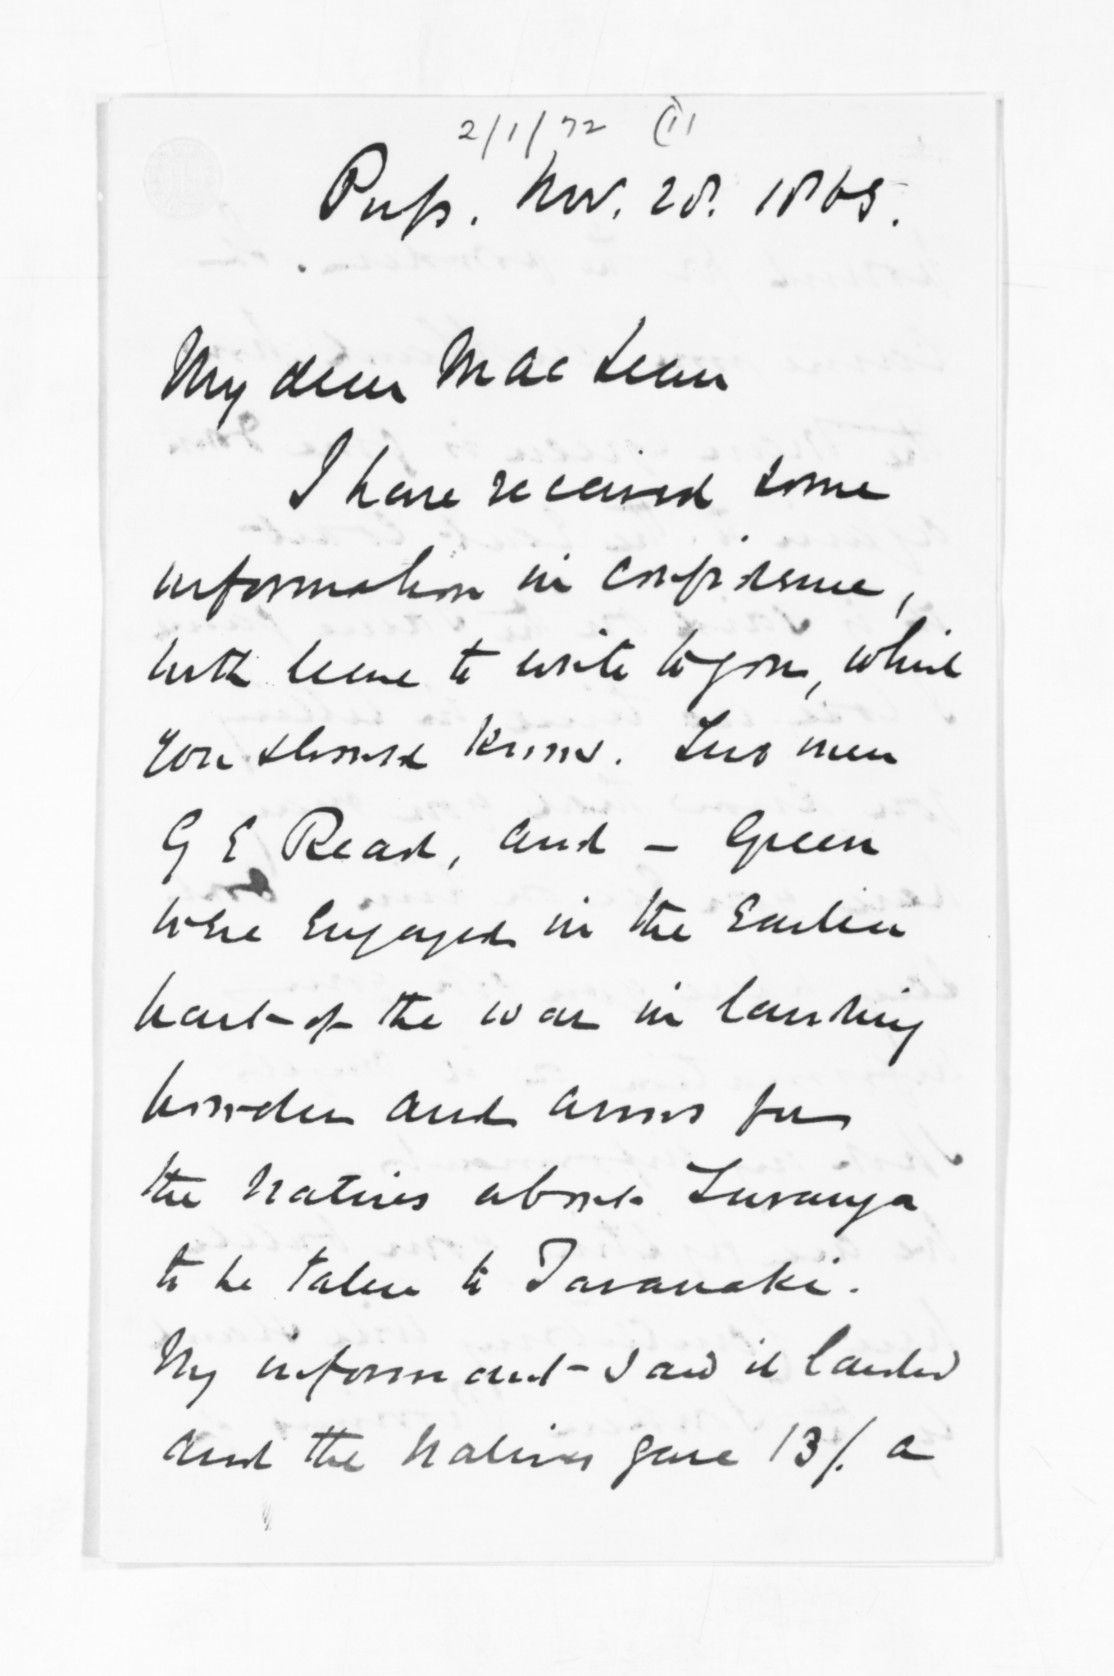 2/1/72 (11
Press. Nov. 28. 1865.
My dear Mac Lean
I have received some
information in confidence,
with leave to write to you, which
you should know. Two men
G E Read, and – Green
were engaged in the Earlier
part of the war in landing
powder and arms for
the Natives about Turanga
to be taken to Taranaki.
My informant saw it landed
and the Natives gave 13/. a